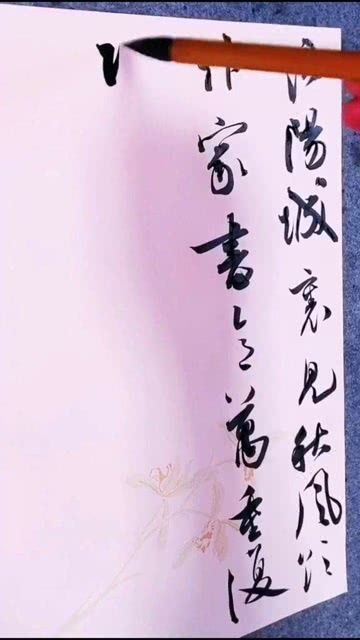 洛陽城裏見秋風欲
作家書意萬重復